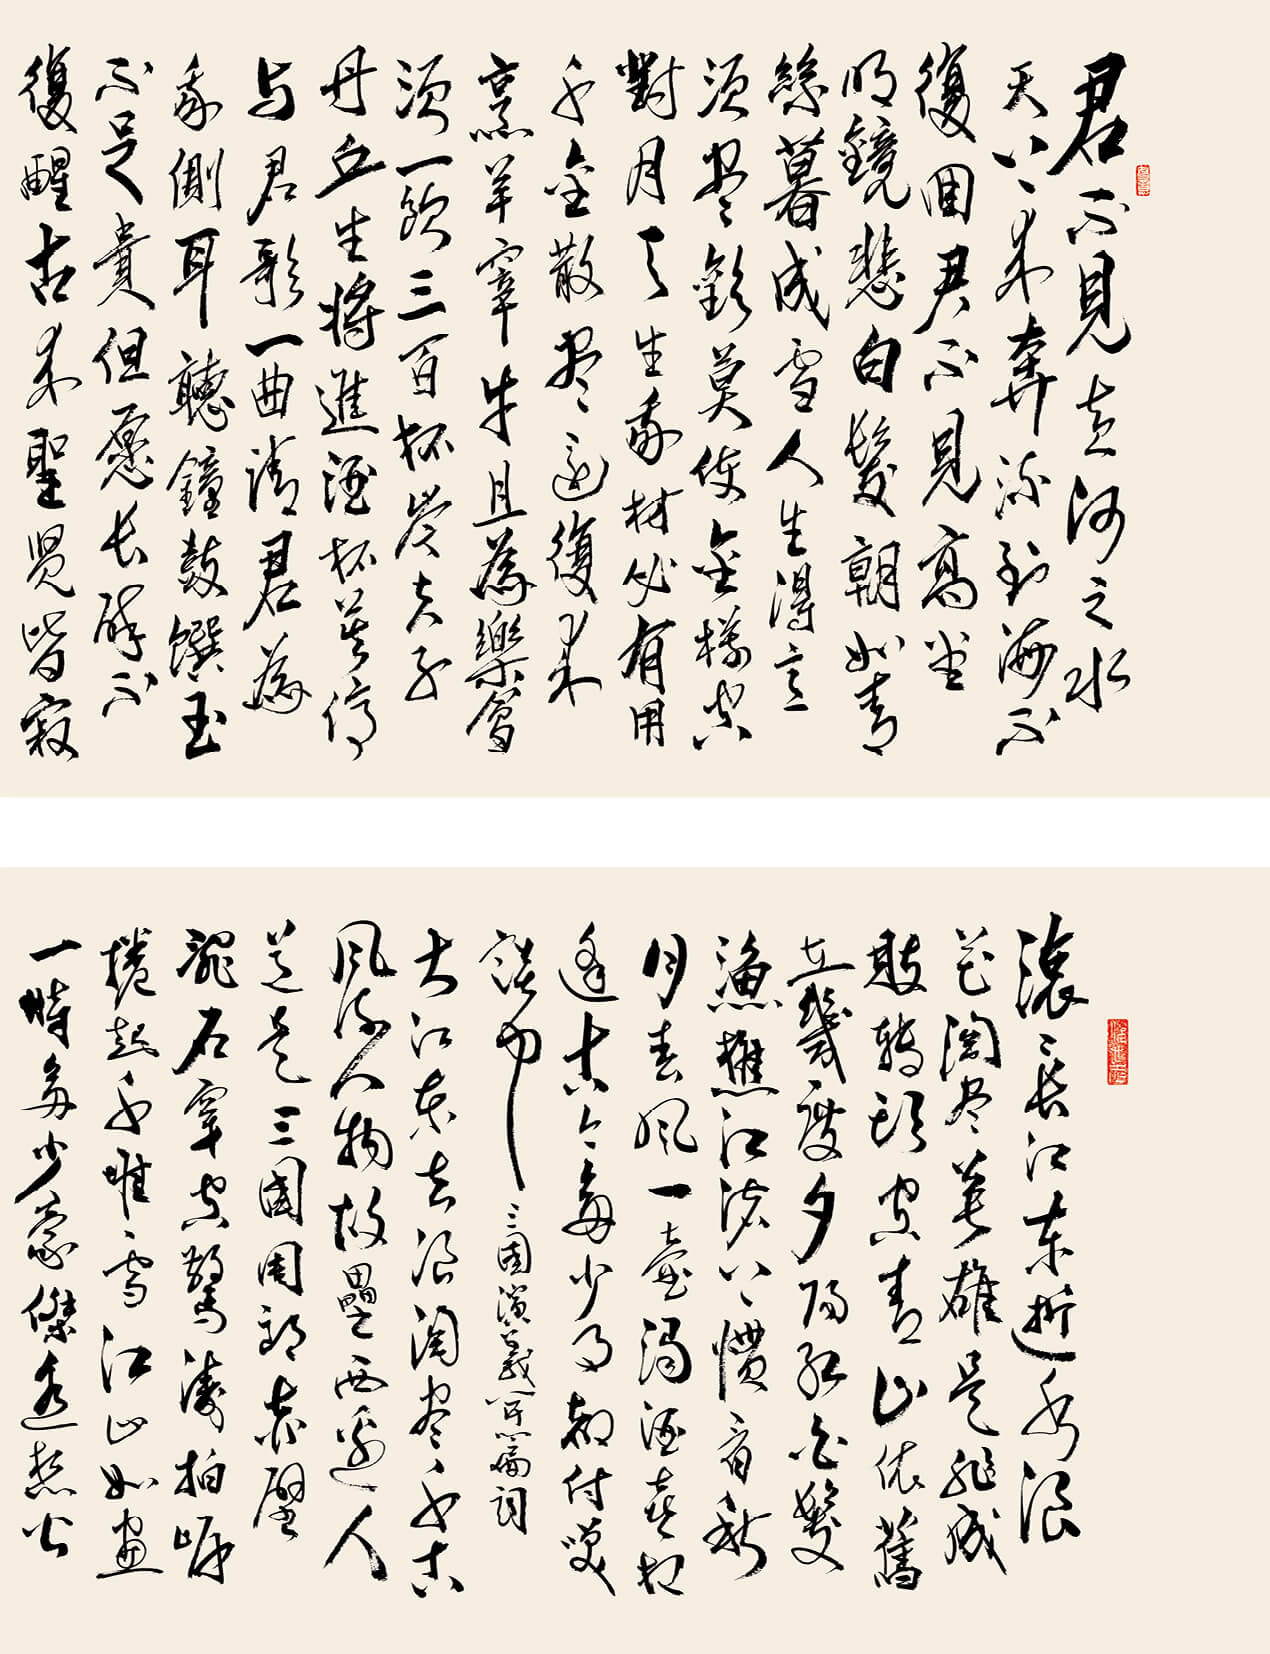 君不見黄河之水
天上来奔流到海不
復回君不見高堂
明鏡悲白髮朝如青
絲暮成雪人生得意
須尽歡莫使金樽空
對月天生我材必有用
千金散尽還復来
烹羊宰牛且為樂會
須一飲三百杯岑夫子
丹丘生將進酒杯莫停
与君歌一曲請君為
我側耳聽鐘鼓饌玉
不足貴但愿长醉不
復醒古来聖賢皆寂
滚滚長江東逝水浪
花淘尽英雄是非成
敗轉頭空青山依舊
在幾度夕陽紅白髮
漁樵江渚上慣看秋
月春風一壺濁酒喜相
逢古今多少事都付笑
談中
三國演義開篇詞
大江東去浪淘尽千古
風流人物故壘西邊人
道是三國周郎赤壁
亂石穿空驚濤拍岸
捲起千堆雪江山如畫
一時多少豪傑遙想公